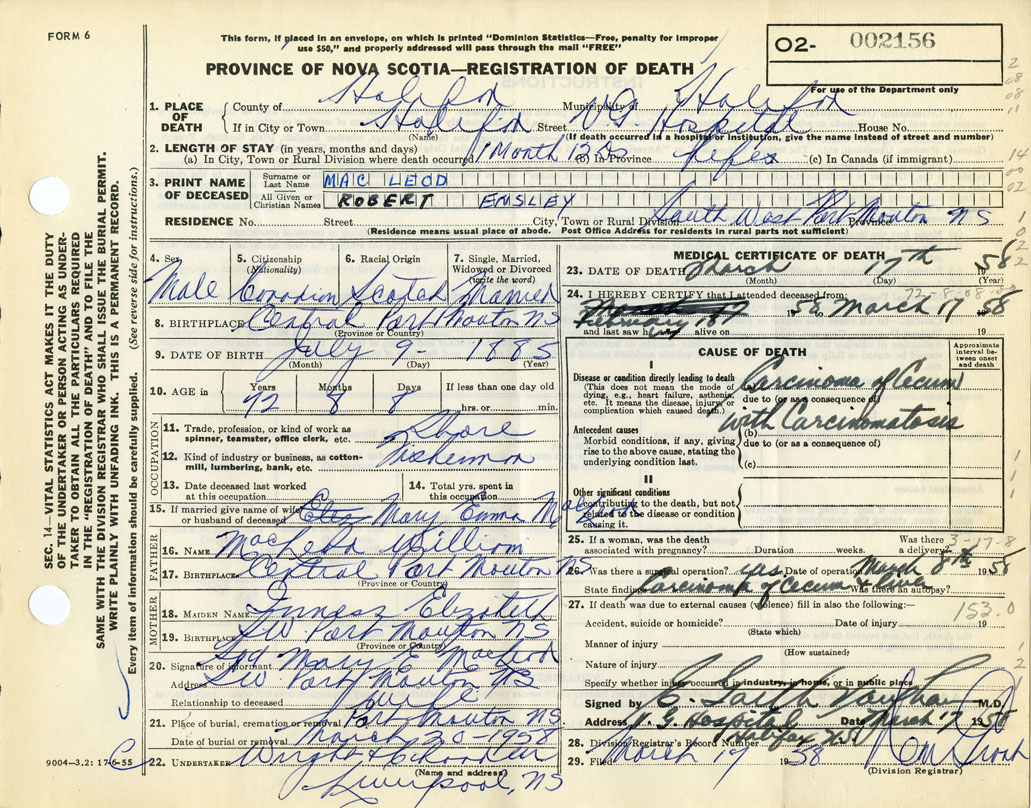 FORM 6
This form, if placed in an envelope, on which is printed "Dominion Statistics—Free, penalty for improper
use $50," and properly addressed will pass through the mail "FREE"
O2- 002156
For use of the Department only
PROVINCE OF NOVA SCOTIA—REGISTRATION OF DEATH
1. PLACE OF DEATH
County of Halifax Municipality of Halifax
If in City or Town Halifax Street V.G. Hospital House No.
(Name) (If death occurred in a hospital or institution, give the name instead of street and number)
2. LENGTH OF STAY (in years, months and days)
(a) In City, Town or Rural Division where death occurred 1 Month 12 Ds (b) In Province Lifex (c) In Canada (if immigrant)
3. PRINT NAME OF DECEASED
Surname or Last Name MAC LEOD
All Given or Christian Names ROBERT EMSLEY
RESIDENCE No. Street City, Town or Rural Division Province South West Port Mouton NS
(Residence means usual place of abode. Post Office Address for residents in rural parts not sufficient)
4. Sex 5. Citizenship (Nationality) 6. Racial Origin 7. Single, Married, Widowed or Divorced (write the word)
Male Canadian Scotch Married
8. BIRTHPLACE Central Port Mouton NS
(Province or Country)
9. DATE OF BIRTH July 9 - 1885
(Month) (Day) (Year)
10. AGE in Years Months Days If less than one day old
72 8 8 hrs. or min.
OCCUPATION
11. Trade, profession, or kind of work as spinner, teamster, office clerk, etc. Shore
12. Kind of industry or business, as cotton-mill, lumbering, bank, etc. Fisherman
13. Date deceased last worked at this occupation
14. Total yrs. spent in this occupation
15. If married give name of wife or husband of deceased Mary Emma
FATHER
16. NAME MacLeod William
17. BIRTHPLACE Central Port Mouton NS
(Province or Country)
MOTHER
18. MAIDEN NAME Inness Elizabeth
19. BIRTHPLACE SW Port Mouton NS
(Province or Country)
20. Signature of informant Sgd Mary E MacLeod
Address SW Port Mouton NS
Relationship to deceased Wife
21. Place of burial, cremation or removal Port Mouton NS.
Date of burial or removal March 20-1958
22. UNDERTAKER Wright &
(Name and address)
Liverpool, NS
MEDICAL CERTIFICATE OF DEATH
23. DATE OF DEATH March 17th 1958
(Month) (Day) (Year)
72-8-08
24. I HEREBY CERTIFY that I attended deceased from:
58 to March 17 1958
and last saw h alive on 19
CAUSE OF DEATH
Approximate interval between onset and death
I
Disease or condition directly leading to death
(This does not mean the mode of dying, e.g., heart failure, asthenia, etc. It means the disease, injury or complication which caused death.)
(a) Carcinoma of Cecum
due to (or as a consequence of)
with Carcinomatosis
Antecedent causes
Morbid conditions, if any, giving rise to the above cause, stating the underlying condition last.
(b)
due to (or as a consequence of)
(c)
II
Other significant conditions
contributing to the death, but not related to the disease or condition causing it.
25. If a woman, was the death associated with pregnancy? Duration weeks. Was there a delivery?
3-17-8
26. Was there a surgical operation? yes Date of operation March 8th 1958
State findings Carcinoma of Cecum & liver Was there an autopsy?
27. If death was due to external causes (violence) fill in also the following:—
153.0
Accident, suicide or homicide? Date of injury 19
(State which)
Manner of injury
(How sustained)
Nature of injury
Specify whether injury occurred in industry, in home, or in public place
Signed by M.D.
Address V. G. Hospital Date March 17 1958
Halifax N.S.
28. Division Registrar's Record Number
29. Filed March 19 1958
(Division Registrar)
SEC. 14—VITAL STATISTICS ACT MAKES IT THE DUTY
OF THE UNDERTAKER OR PERSON ACTING AS UNDER-
TAKER TO OBTAIN ALL THE PARTICULARS REQUIRED
IN THE "REGISTRATION OF DEATH" AND TO FILE THE
SAME WITH THE DIVISION REGISTRAR WHO SHALL ISSUE THE BURIAL PERMIT.
WRITE PLAINLY WITH UNFADING INK. THIS IS A PERMANENT RECORD.
Every item of information should be carefully supplied. (See reverse side for instructions.)
9004—3.2: 17-6-55